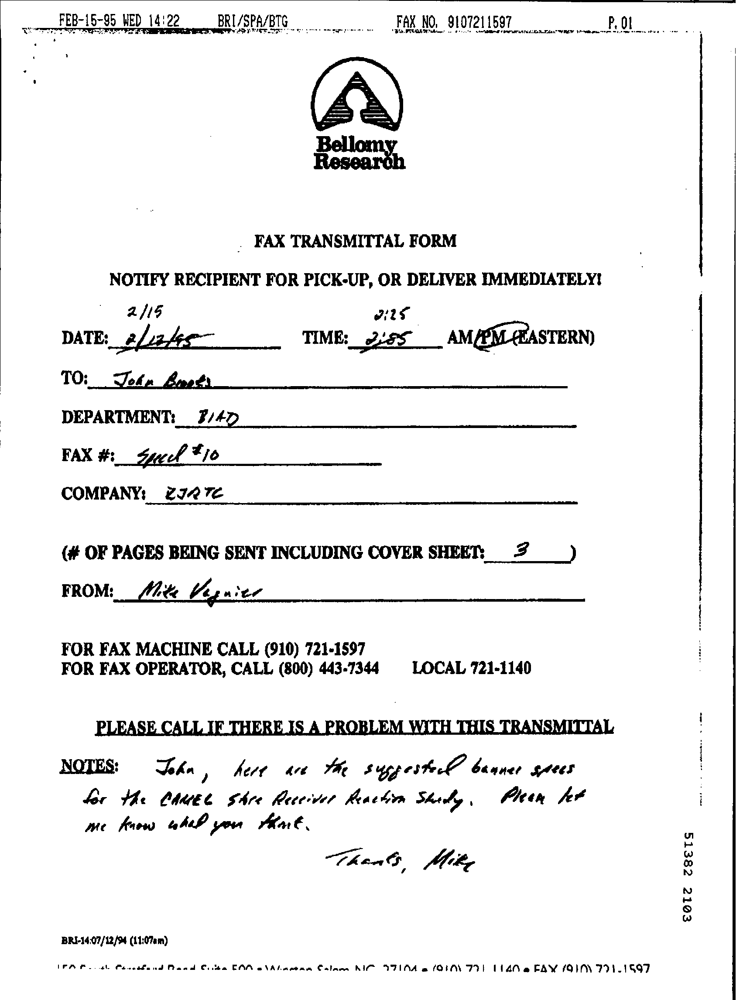 FEB-15-95 WED 14:22 BRI/SPA/BTG FAX NO. 9107211597 P.01
Bellomy
Research
FAX TRANSMITTAL FORM
NOTIFY RECIPIENT FOR PICK-UP, OR DELIVER IMMEDIATELY!
2/15 2:25
DATE: 2/12/95 TIME: 2:85 AM/PM (EASTERN)
TO: John
DEPARTMENT: BIAD
FAX #: Speed #10
COMPANY: RJRTC
(# OF PAGES BEING SENT INCLUDING COVER SHEET: 3 )
FROM: Mike
FOR FAX MACHINE CALL (910) 721-1597
FOR FAX OPERATOR, CALL (800) 443-7344 LOCAL 721-1140
PLEASE CALL IF THERE IS A PROBLEM WITH THIS TRANSMITTAL
NOTES: John, here are the suggested banner specs
for the CAMEL Receiver Reaction Study. Please let
me know what you think.
Thanks, Mike
51382 2103
BRI-14:07/12/94 (11:07am)
Road Suite 500 • Winston Salem NC 27104 • (910) 721 1140 • FAX (910) 721-1597